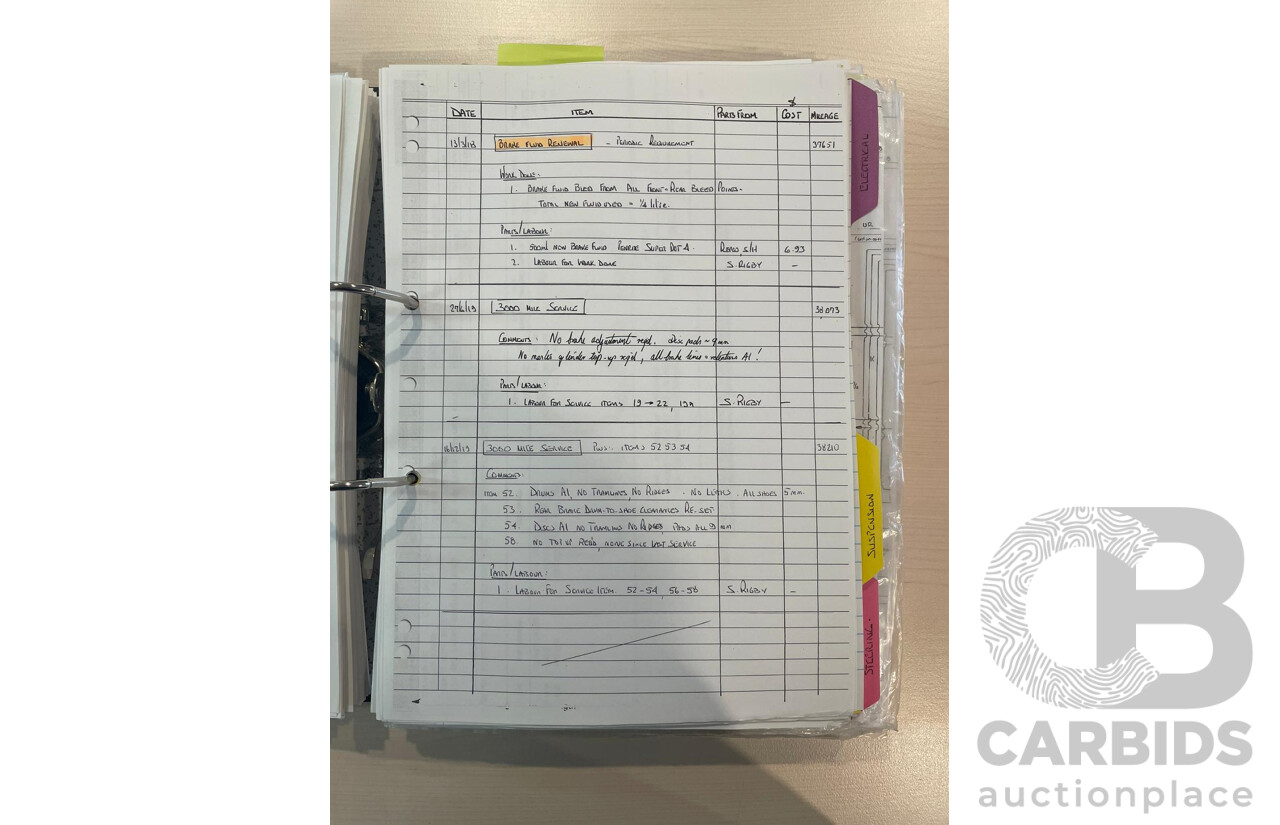 $
DATE ITEM PARTS FROM COST MILEAGE
13/3/18 BRAKE FLUID RENEWAL - PERIODIC REQUIREMENT 37651
WORK DONE:-
1. BRAKE FLUID BLED FROM ALL FRONT + REAR BLEED POINTS-
TOTAL NEW FLUID USED = 1/4 litre.
PARTS/LABOUR:
1. 500ml NEW BRAKE FLUID PENRITE SUPER DOT 4. REPCO, S/H 6.93
2. LABOUR FOR WORK DONE S. RIGBY -
3000 MILE SERVICE 38,073
COMMENTS: No brake adjustment reqd. Disc pads ~ 9mm
No master cylinder top-up reqd, all brake lines + A1!
PARTS/LABOUR:
1. LABOUR FOR SERVICE ITEMS 19 → 22, S. RIGBY -
3000 MILE SERVICE PLUS ITEMS 52 53 54 38210
COMMENTS:
ITEM 52. DRUMS A1, NO TRAMLINES, NO RIDGES. NO LEAKS. ALL SHOES 5mm.
53. REAR BRAKE DRUM-TO-SHOE CLEARANCES RE-SET
54. DISCS A1 NO TRAMLINES NO RIDGES PADS ALL 9mm
58. NO TOP UP REQ'D, NONE SINCE LAST SERVICE
PARTS/LABOUR:
1. LABOUR FOR SERVICE ITEM 52-54, 56-58 S. RIGBY -
ELECTRICAL
SUSPENSION
STEERING.
CB
CARBIDS
auctionplace